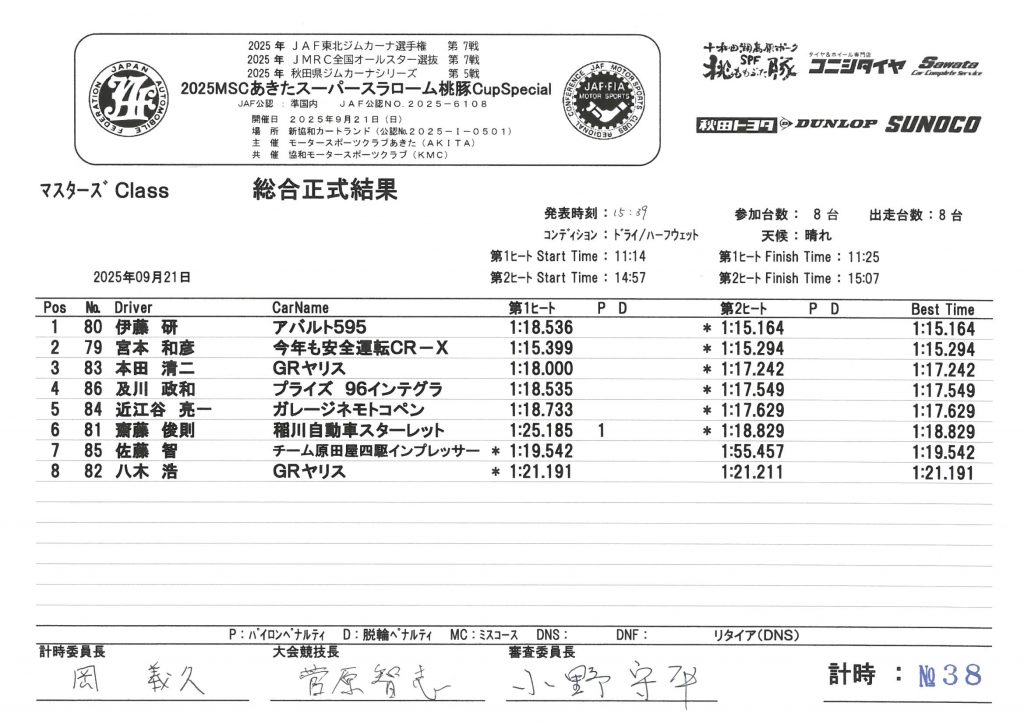 2025 年 ＪＡＦ東北ジムカーナ選手権 第 7戦
2025 年 ＪＭＲＣ全国オールスター選抜 第 7戦
2025 年 秋田県ジムカーナシリーズ 第 5戦
2025MSCあきたスーパースラローム桃豚CupSpecial
JAF公認 ： 準国内 ＪＡＦ公認NO.２０２５－６１０８
開催日 ２０２５年９月２１日（日）
場 所 新協和カートランド（公認№２０２５－Ｉ－０５０１）
主 催 モータースポーツクラブあきた（ＡＫＩＴＡ）
共 催 協和モータースポーツクラブ（ＫＭＣ）
JAPAN AUTOMOBILE FEDERATION
JAF
JAF MOTOR SPORTS CLUBS REGIONAL CONFERENCE
JAF・FIA
MOTOR SPORTS
十和田湖高原ポーク
SPF
桃ももぶた豚
タイヤ&ホイール専門店
コニシタイヤ
Sawata
Car Complete Service
秋田トヨタ
DUNLOP
SUNOCO
ﾏｽﾀｰｽﾞ Class 総合正式結果
発表時刻：15:39 参加台数： 8 台 出走台数：8 台
ｺﾝﾃﾞｨｼｮﾝ：ﾄﾞﾗｲ/ﾊｰﾌｳｪｯﾄ 天候：晴れ
第1ﾋｰﾄ Start Time：11:14 第1ﾋｰﾄ Finish Time：11:25
2025年09月21日 第2ﾋｰﾄ Start Time：14:57 第2ﾋｰﾄ Finish Time：15:07
Pos №. Driver CarName 第1ﾋｰﾄ P D 第2ﾋｰﾄ P D Best Time
1 80 伊藤 研 アバルト595 1:18.536 * 1:15.164 1:15.164
2 79 宮本 和彦 今年も安全運転CR－X 1:15.399 * 1:15.294 1:15.294
3 83 本田 清二 GRヤリス 1:18.000 * 1:17.242 1:17.242
4 86 及川 政和 プライズ 96インテグラ 1:18.535 * 1:17.549 1:17.549
5 84 近江谷 亮一 ガレージネモトコペン 1:18.733 * 1:17.629 1:17.629
6 81 齋藤 俊則 稲川自動車スターレット 1:25.185 1 * 1:18.829 1:18.829
7 85 佐藤 智 チーム原田屋四駆インプレッサー * 1:19.542 1:55.457 1:19.542
8 82 八木 浩 GRヤリス * 1:21.191 1:21.211 1:21.191
P：ﾊﾟｲﾛﾝﾍﾟﾅﾙﾃｨ D：脱輪ﾍﾟﾅﾙﾃｨ MC：ﾐｽｺｰｽ DNS： DNF： ﾘﾀｲｱ(DNS)
計時委員長 大会競技長 審査委員長
岡 義久 菅原智志 小野守平
計時 ： №38